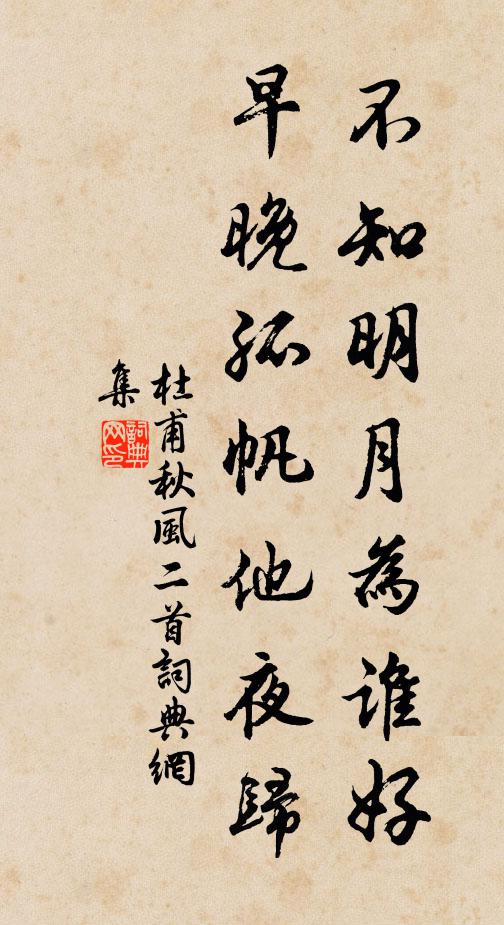 不知明月為誰好
早晚孤帆他夜歸
杜甫秋風二首詞典網
集
詞典
网印